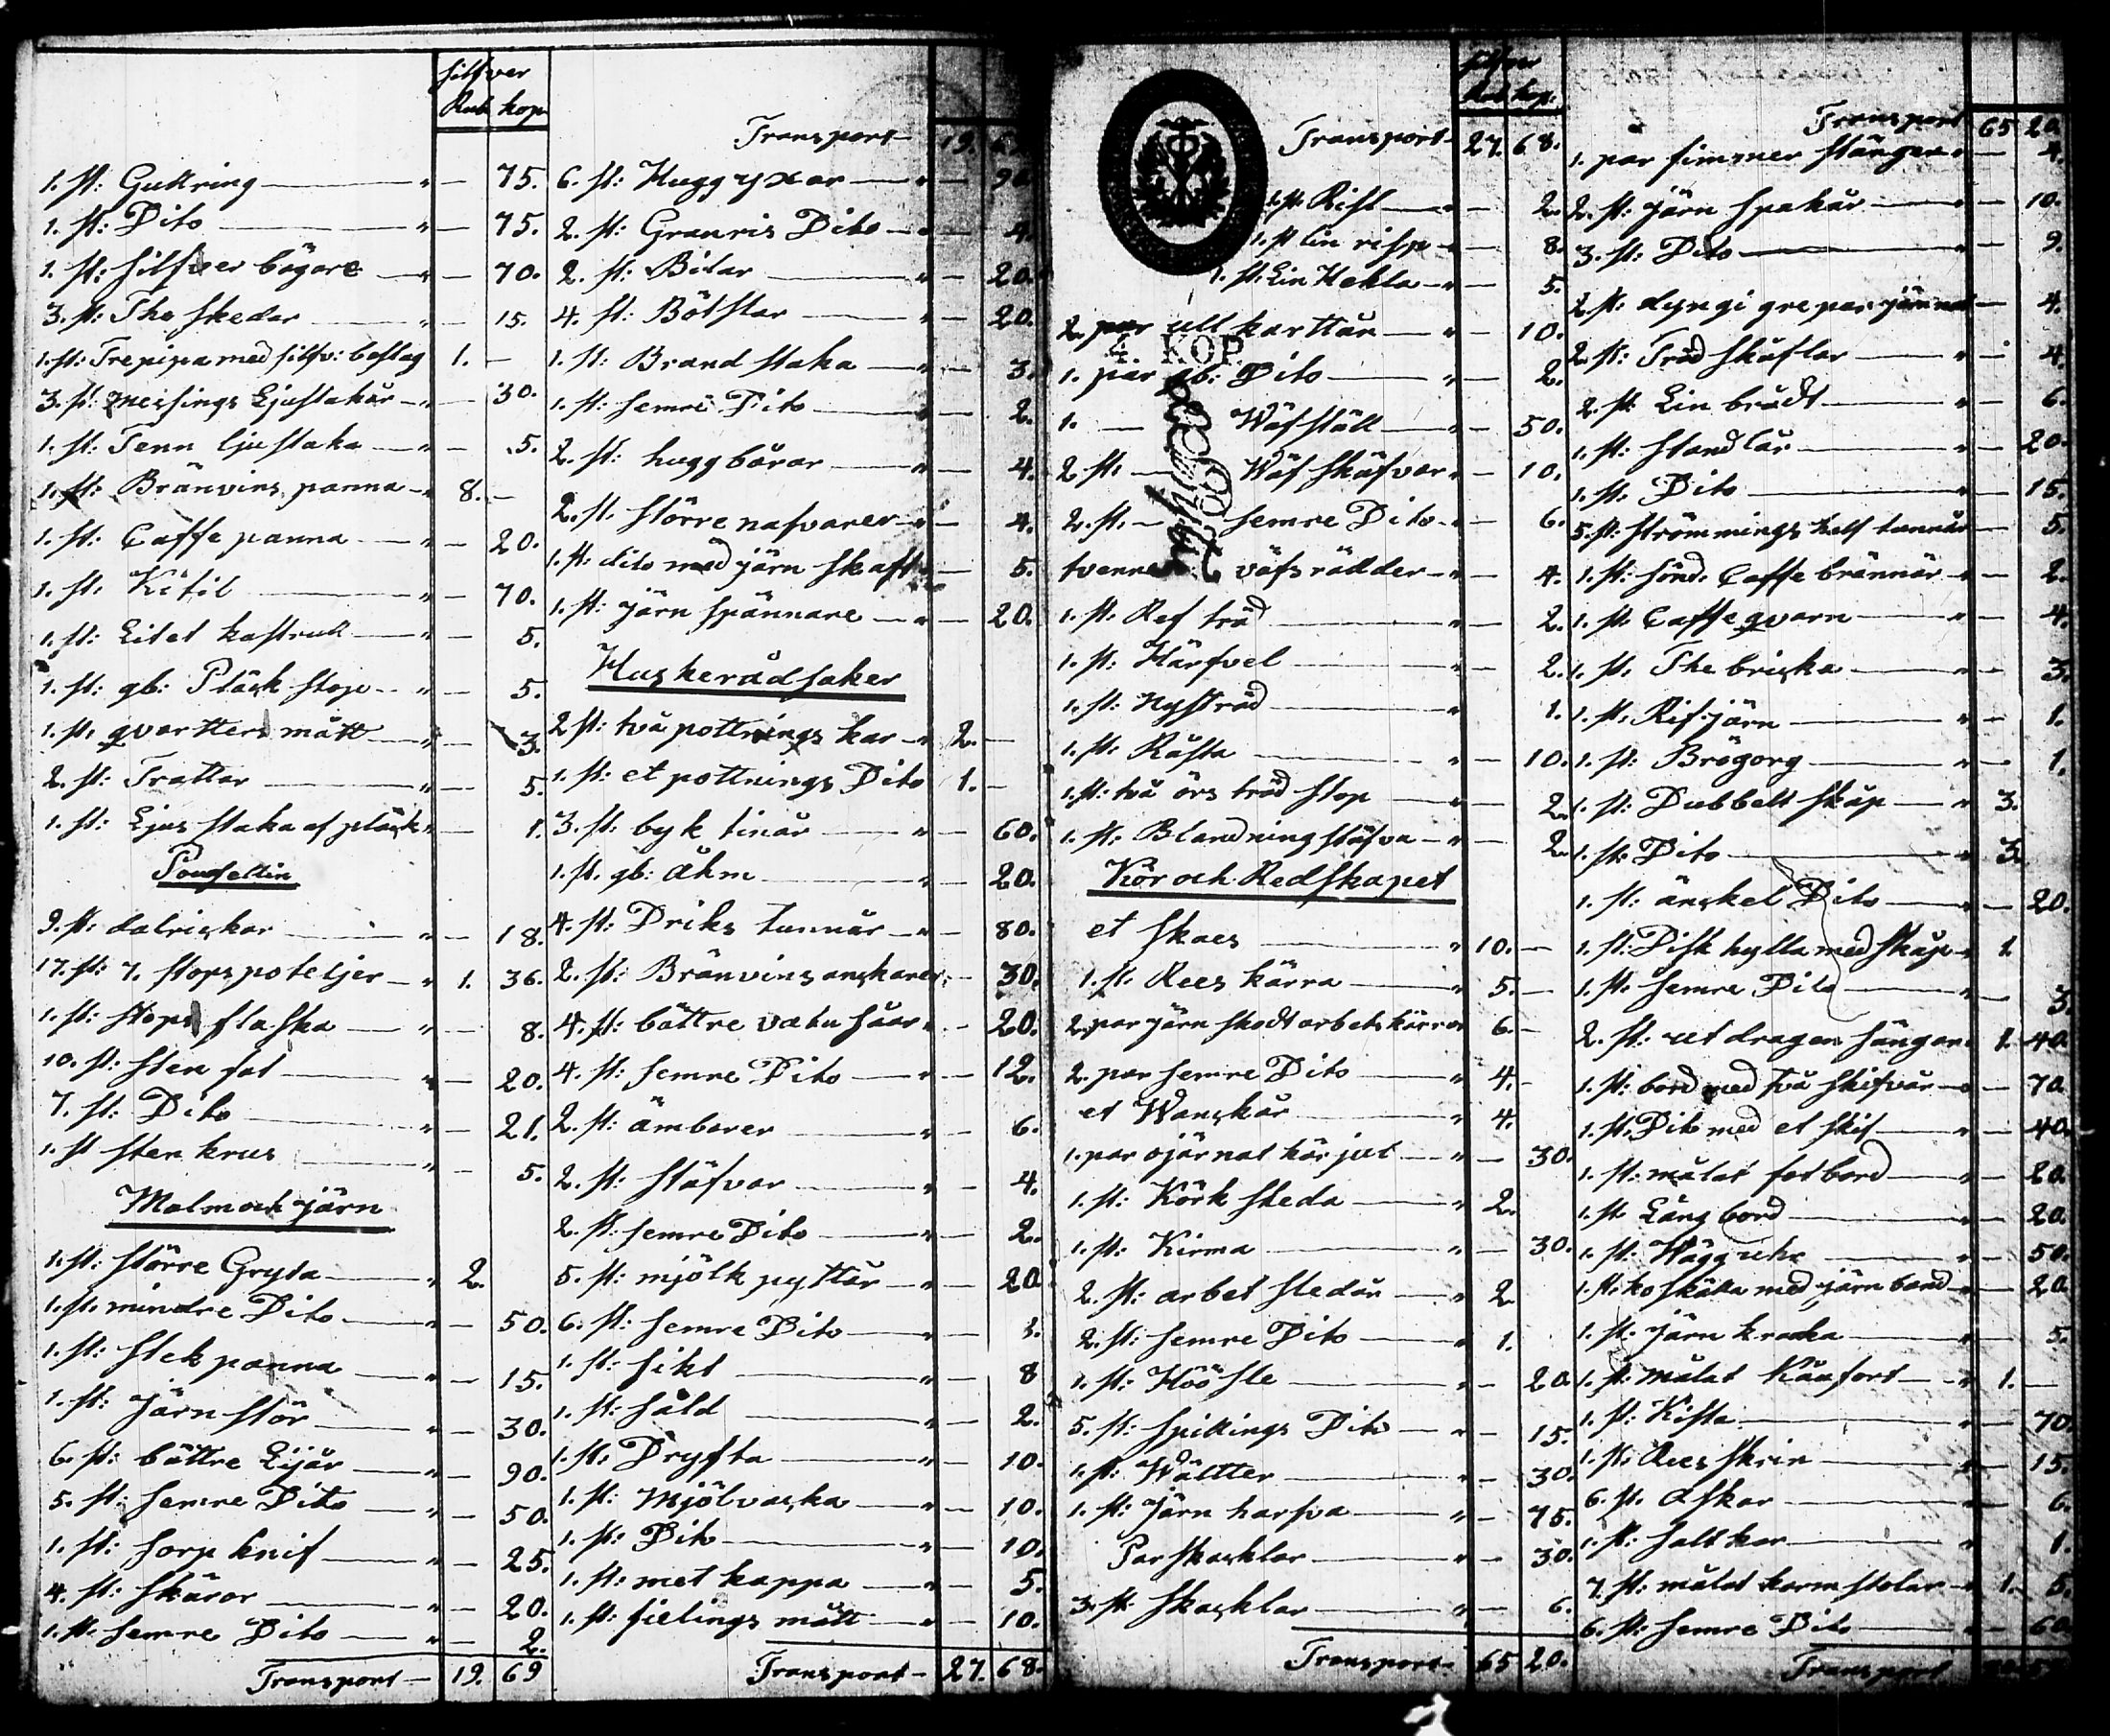 silfver
Rub kop
1. st: Gullring — " — 75.
1. st: Dito — " — 75.
1. st: silfver bägare — " — 70.
3. st: The skedar — " — 15.
1. st: Trepipa med silfv: beslag 1. —
3. st: messings Ljustakar — " 30.
1. st: Tenn ljustaka — " — 5.
1. st: Bränvins panna — " 8. —
1. st: Caffe panna — " — 20.
1. st: Kitil — " — 70.
1. st: Litet kastrull — " — 5.
1. st: gb: Pläsk stop — " — 5.
1. st: qvartters mått — " — 3.
2. st: Trattar — " — 5.
1. st: Ljus staka af pläsk " — 1.
9. st: talriskar — " — 18.
17. st: 7. stops poteljer — " 1. 36.
1. st: stops flaska — " — 8.
10. st: sten fat — " — 20.
7. st: Dito — " — 21.
1. st sten krus — " — 5.
Malm och järn
1. st: större Gryta — " 2.
1. st. mindre Dito — " — 50.
1. st: stek panna — " — 15.
1. st: Järn stör — " — 30.
6. st: bättre Lijår — " — 90.
5. st: semre Dito — " — 50.
1. st: sorp knif — " — 25.
4. st: skäror — " — 20.
1. st. semre Dito — " — 2.
Transport — 19. 69
Transport — 19.
6. st: Hugg yxar — " —
2. st: Granris Dito — " — 4.
2. st: Bilar — " — 20.
4. st: Bötslar — " — 20.
1. st: Brand staka — " — 3.
1. st: semre Dito — " — 2.
2. st: huggbårar — " — 4.
2. st. större nafvarer — " — 4.
1. st: dito med järn skaft — 5.
1. st: järn spännare — " — 20.
Huskerådsaker
2 st: två pottnings kar — " 2. —
1. st: et pottnings Dito 1. —
3. st: byk tinår — " — 60.
1. st. gb: åhm — " — 20.
4. st: Driks tunnår — " — 80.
2. st: Bränvins anskarer — 30.
4. st: bättre vatu såar " — 20.
4. st: semre Dito — " — 12.
2. st: ämbarer — " — 6.
2. st: stäfvor — " — 4.
2. st: semre Dito — " — 2.
5. st: mjölk pyttår — " — 20
6. st: semre Dito — " — 3.
1. st: sikt — " — 8
1. st: såld — " — 2.
1. st. Dryfta — " — 10.
1. st: Mjölvaska — " — 10.
1. st: Dito — " — 10.
1. st: met kappa — " — 5.
1. st: fielings mått — " — 10.
Transport — 27. 68.
silfver
Rub kop.
Transport — 27. 68.
1. st. Rist — " — 2.
1. st lin risp — " — 8.
1. st: Lin Hekla — " — 5.
2. par ull karttår — " — 10.
4. KOP.
1. par gb: Dito — " — 2.
1. — Wäfställ — " — 50.
2. st. — Wäf skäfvar " — 10.
2. st. — semre Dito — " — 6.
tvenne väfs rädder — " — 4.
1. st. Ref träd — " — 2.
1. st: Härfvel — " — 2.
1. st: Nysträd — " 1.
1. st. Råsta — " — 10.
1. st: två örs träd stop — " — 2.
1. st: Blandning stäfva — " — 2.
Kör och Redskapet
et skaes — " 10. —
1. st. Rees kärra — " 5. —
2. par järn skodt arbets kärror 6. —
2. par semre Dito — " 4. —
et Wanskår — " 4.
1. par ojärnat kör jul — " — 30.
1. st: Körk släda — " 2.
1. st: Kirma — " — 30.
2. st: arbet sledår — " 2
2. st: semre Dito — " 1.
1. st: Höö sle — " — 20
5. st: spikings Dito — " — 15.
1. st: Wältter — " — 30.
1. st: Järn harfva — " — 75.
Par skasklar — " — 30.
3. st skasklar — " — 6.
Transport — 65 20.
Transport 65 20.
1. par simmer stänger " — 4.
2. st: järn spakår — " — 10.
3. st: Dito — " — 9.
2 st: dyngi grepar järnnat — 4.
2. st: Träd skäflar — " — 4.
2. st Lin brådt — " — 6.
1. st: stand lår — " — 20.
1. st. Dito — " — 15.
5. st: strömmings half tunnår — 5.
1. st: sönd. Caffe brännår " — 2.
1. st Caffe qvarn — " — 4.
1. st. The briska — " — 3.
1. st. Rif järn — " — 1.
1. st: Brögorg — " — 1.
1. st: Dubbelt skåp — " 3.
1. st: Dito — " 3.
1. st: änskel Dito — " — 20.
1. st: Disk hylla med skåp " 1.
1. st. semre Dito — " — 3.
2. st: ut dragen sängar 1. 40.
1. st: bord med två skifvår — " — 70
1. st. Dito med et skif — " — 40.
1. st: målat fot bord — " — 20
1. st Lång bord — " — 20
1. st: Wägguhr — " — 50.
1. st. ko skälla med järn band — " — 20.
1. st: järn kraka — " — 5.
1. st: målat Kåafort — " 1. —
1. st: Kista — " — 70.
1. st. Rees skrin — " — 15.
6. st. askar — " — 6.
1. st: salt kar — " 1.
7. st: målat karm stolar — " 1. 5.
6. st: semre Dito — " — 60
Transport